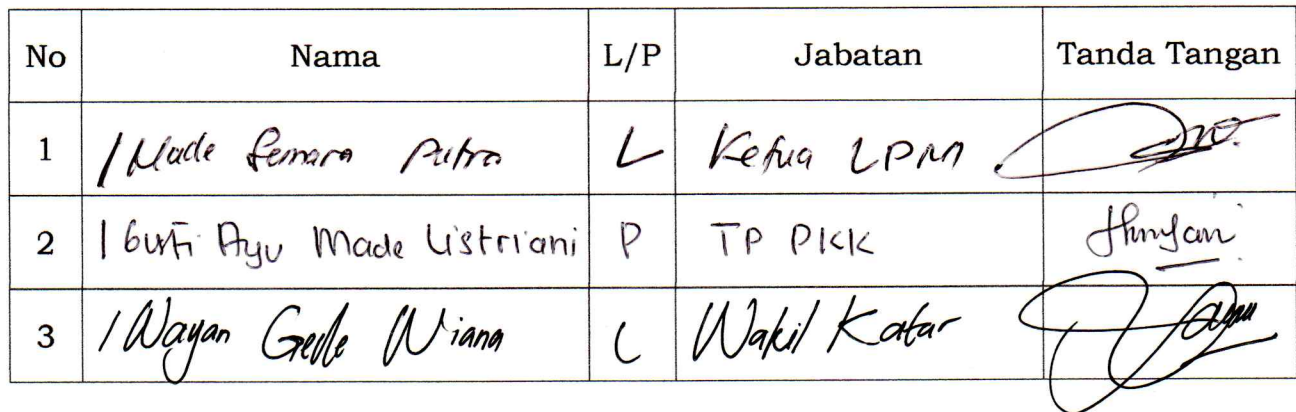 No Nama L/P Jabatan Tanda Tangan
1 I Made Semara Putra L Ketua LPM
2 I Gusti Ayu Made Listriani P TP PKK
3 I Wayan Gede Wiana L Wakil Katar